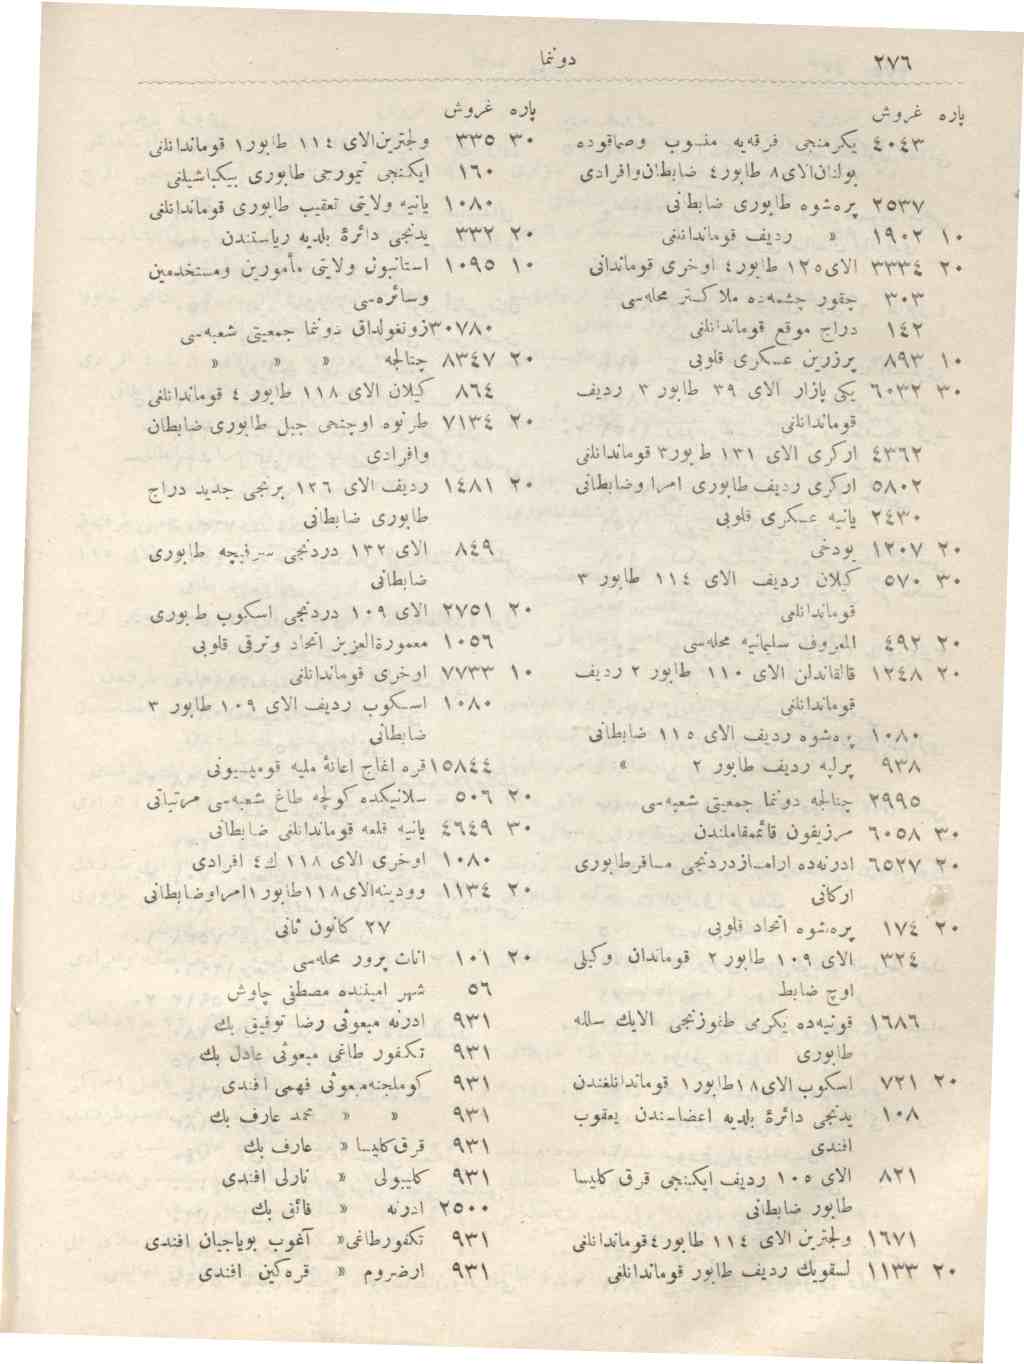 ٢٧٦
دوننما
پاره غروش
٤٠٤٣ يكرمنجى فرقه‌يه منسوب وصماقوده
بولنان الاى ٨ طابور ٤ ضابطان وافرادى
٢٥٣٧ پره‌شوه طابورى ضابطانى
١٠ ١٩٠٢ » رديف قوماندانلغى
٢٠ ٣٣٣٤ الاى ١٢٥ طابور ٤ اوخرى قوماندانى
٣٠٣ چقور چشمه‌ده ملا كستر محله‌سى
١٤٢ دراج موقع قوماندانلغى
١٠ ٨٩٣ پرزرين عسكرى قلوبى
٣٠ ٦٠٣٢ يكى پازار الاى ٣٩ طابور ٣ رديف
قوماندانلغى
٤٣٦٢ اركرى الاى ١٣١ طابور ٣ قوماندانلغى
٥٨٠٢ اركرى رديف طابورى امرا وضابطانى
٢٤٣٠ يانيه عسكرى قلوبى
٢٠ ١٢٠٧ يودخى
٣٠ ٥٧٠ كيلان رديف الاى ١١٤ طابور ٣
قوماندانلغى
٢٠ ٤٩٢ المعروف سليمانيه محله‌سى
٢٠ ١٢٤٨ قالقاندلن الاى ١١٠ طابور ٢ رديف
قوماندانلغى
١٠٨٠ پره‌شوه رديف الاى ١١٥ ضابطانى
٩٣٨ پرلپه رديف طابور ٢ »
٢٩٩٥ چتالجه دوننما جمعيتى شعبه‌سى
٣٠ ٦٠٥٨ مرزيفون قائممقاملغندن
٢٠ ٦٥٢٧ ادرنه‌ده دردنجى مسافر طابورى
اركانى
٢٠ ١٧٤ پره‌شوه اتحاد قلوبى
٣٢٤ الاى ١٠٩ طابور ٢ قوماندان وكيلى
اوچ ضابط
١٦٨٦ قونيه‌ده يكرمى طقوزنجى الايك سلله
طابورى
٢٠ ٧٢١ اسكوب الاى ١٨ طابور ١ قوماندانلغندن
١٠٨ يدنجى دائرۀ بلديه اعضاسندن يعقوب
افندى
٨٢١ الاى ١٠٥ رديف ايكنجى قرق كليسا
طابور ضابطانى
١٦٧١ ولچترين الاى ١١٤ طابور ٤ قوماندانلغى
٢٠ ١١٣٣ لسقويك رديف طابور قوماندانلغى
پاره غروش
٣٠ ٣٣٥ ولچترين الاى ١١٤ طابور ١ قوماندانلغى
١٦٠ ايكنجى تيمورجى طابورى بيكباشيلغى
١٠٨٠ يانيه ولايتى تعقيب طابورى قوماندانلغى
٢٠ ٣٣٢ يدنجى دائرۀ بلديه رياستندن
١٠ ١٠٩٥ استانبول ولايتى مأمورين ومستخدمين
وسائره‌سى
٣٠٧٨٠ زونغولداق دوننما جمعيتى شعبه‌سى
٢٠ ٨٣٤٧ چتالجه » » »
٨٦٤ كيلان الاى ١١٨ طابور ٤ قوماندانلغى
٢٠ ٧١٣٤ طرنوه اوچنجى جبل طابورى ضابطان
وافرادى
٢٠ ١٤٨١ رديف الاى ١٢٦ برنجى جديد دراج
طابورى ضابطانى
٨٤٩ الاى ١٣٢ دردنجى سرفيچه طابورى
ضابطانى
٢٠ ٢٧٥١ الاى ١٠٩ دردنجى اسكوب طابورى
١٠٥٦ معمورةالعزيز اتحاد وترقى قلوبى
١٠ ٧٧٣٣ اوخرى قوماندانلغى
١٠٨٠ اسكوب رديف الاى ١٠٩ طابور ٣
ضابطانى
١٥٨٤٤ قره اغاج اعانۀ مليه قوميسيونى
٢٠ ٥٠٦ سلانيكده كولچه طاغ شعبه‌سى مرتباتى
٣٠ ٤٦٤٩ يانيه قلعه قوماندانلغى ضابطانى
١٠٨٠ اوخرى الاى ١١٨ ك ٤ افرادى
٢٠ ١١٣٤ وودينه الاى ١١٨ طابور ١ امرا وضابطانى
٢٧ كانون ثانى
٢٠ ١٠١ اناث پرور محله‌سى
٥٦ شهر اميننده مصطفى چاوش
٩٣١ ادرنه مبعوثى رضا توفيق بك
٩٣١ تكفور طاغى مبعوثى عادل بك
٩٣١ كوملجنه مبعوثى فهمى افندى
٩٣١ » » محمد عارف بك
٩٣١ قرق كليسا » عارف بك
٩٣١ كليبولى » نارلى افندى
٢٥٠٠ ادرنه » فائق بك
٩٣١ تكفور طاغى » آغوب بوياجيان افندى
٩٣١ ارضروم » قره‌كين افندى